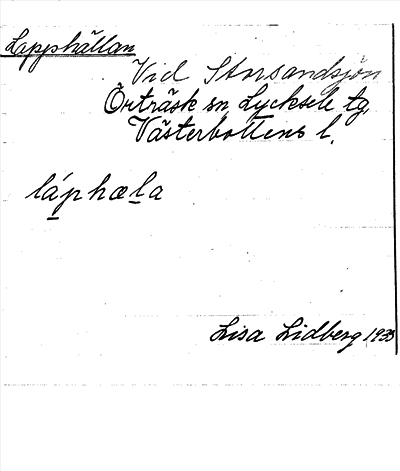 Lapphällan
Vid Storsandsjön
Örträsk sn, Lycksele tg,
Västerbottens l.
láphæla
Lisa Lidberg 1935